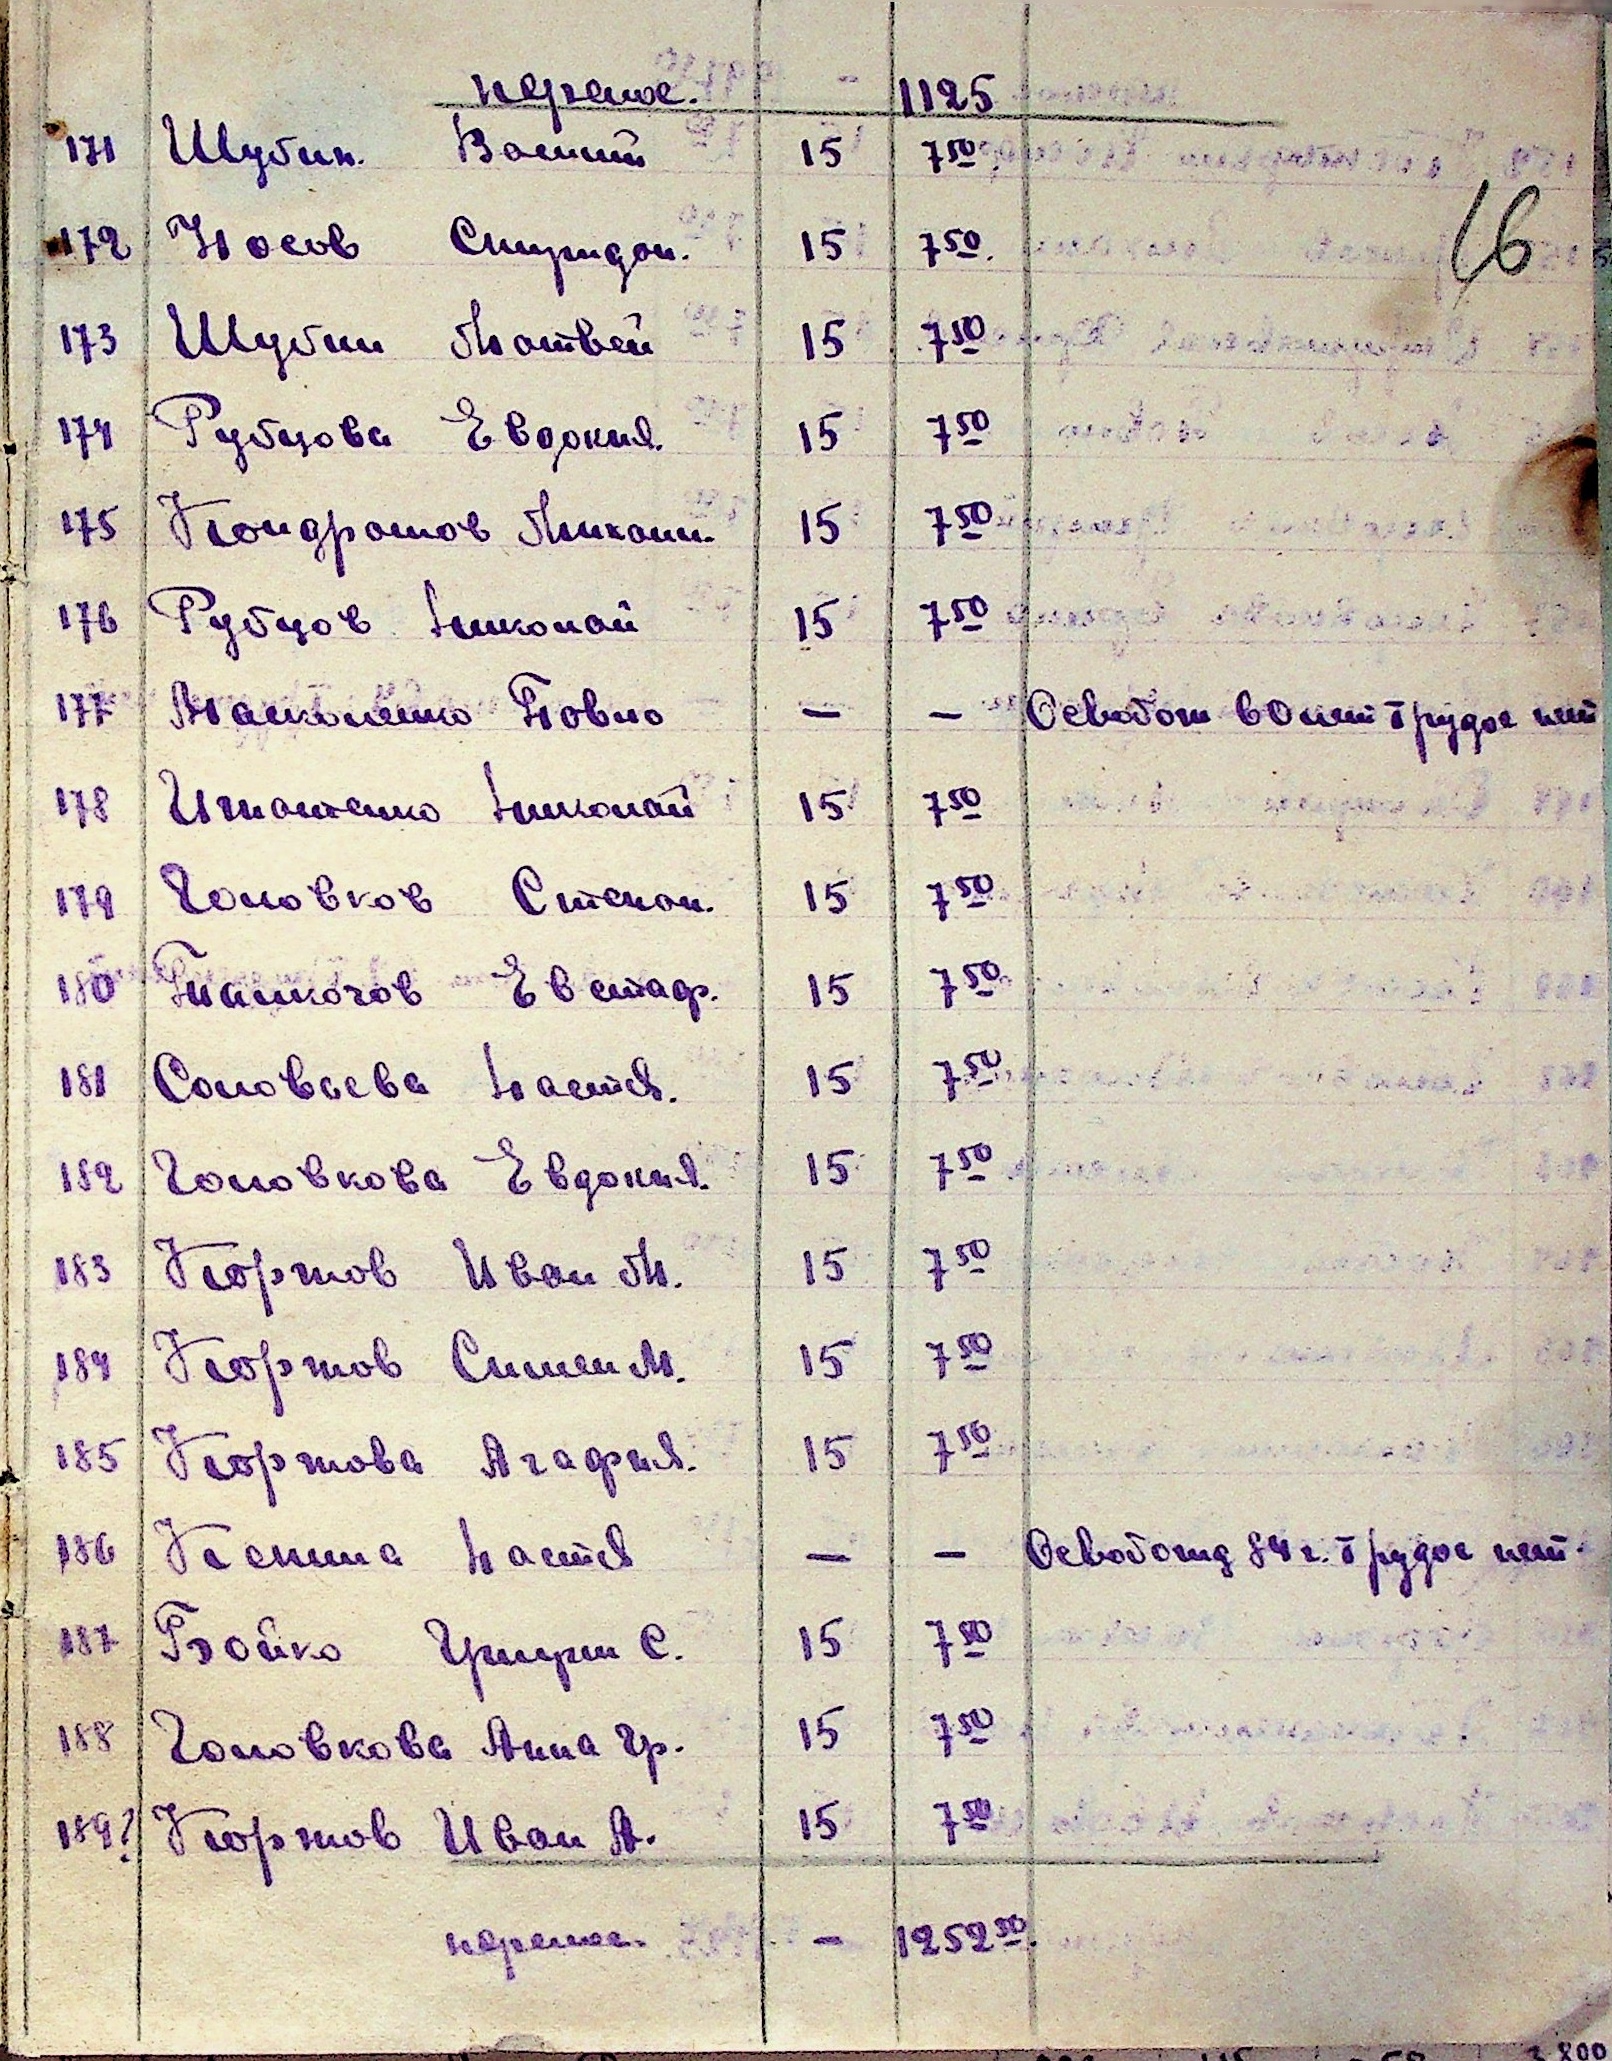 перенос. - 1125
171 Шубин. Василий 15 7 50
16
172 Носов Спиридон. 15 7 50.
173 Шубин Матвей 15 7 50
174 Рубцова Евдокия. 15 7 50
175 Кондрашов Михаил. 15 7 50
176 Рубцов Николай 15 7 50
177 Павло — — нет
178 Николай 15 7 50
179 Головков Степан. 15 7 50
180 Евстаф. 15 7 50
181 Соловьева Настя. 15 7 50
182 Головкова Евдокия. 15 7 50
183 Коржов Иван М. 15 7 50
184 Коржов Симен М. 15 7 50
185 Коржова Агафия. 15 7 50
186 Настя — — нет.
187 Бойко Григрий С. 15 7 50
188 Головкова Анна Гр. 15 7 50
189? Коржов Иван А. 15 7 50
перенос. — 1252 50.